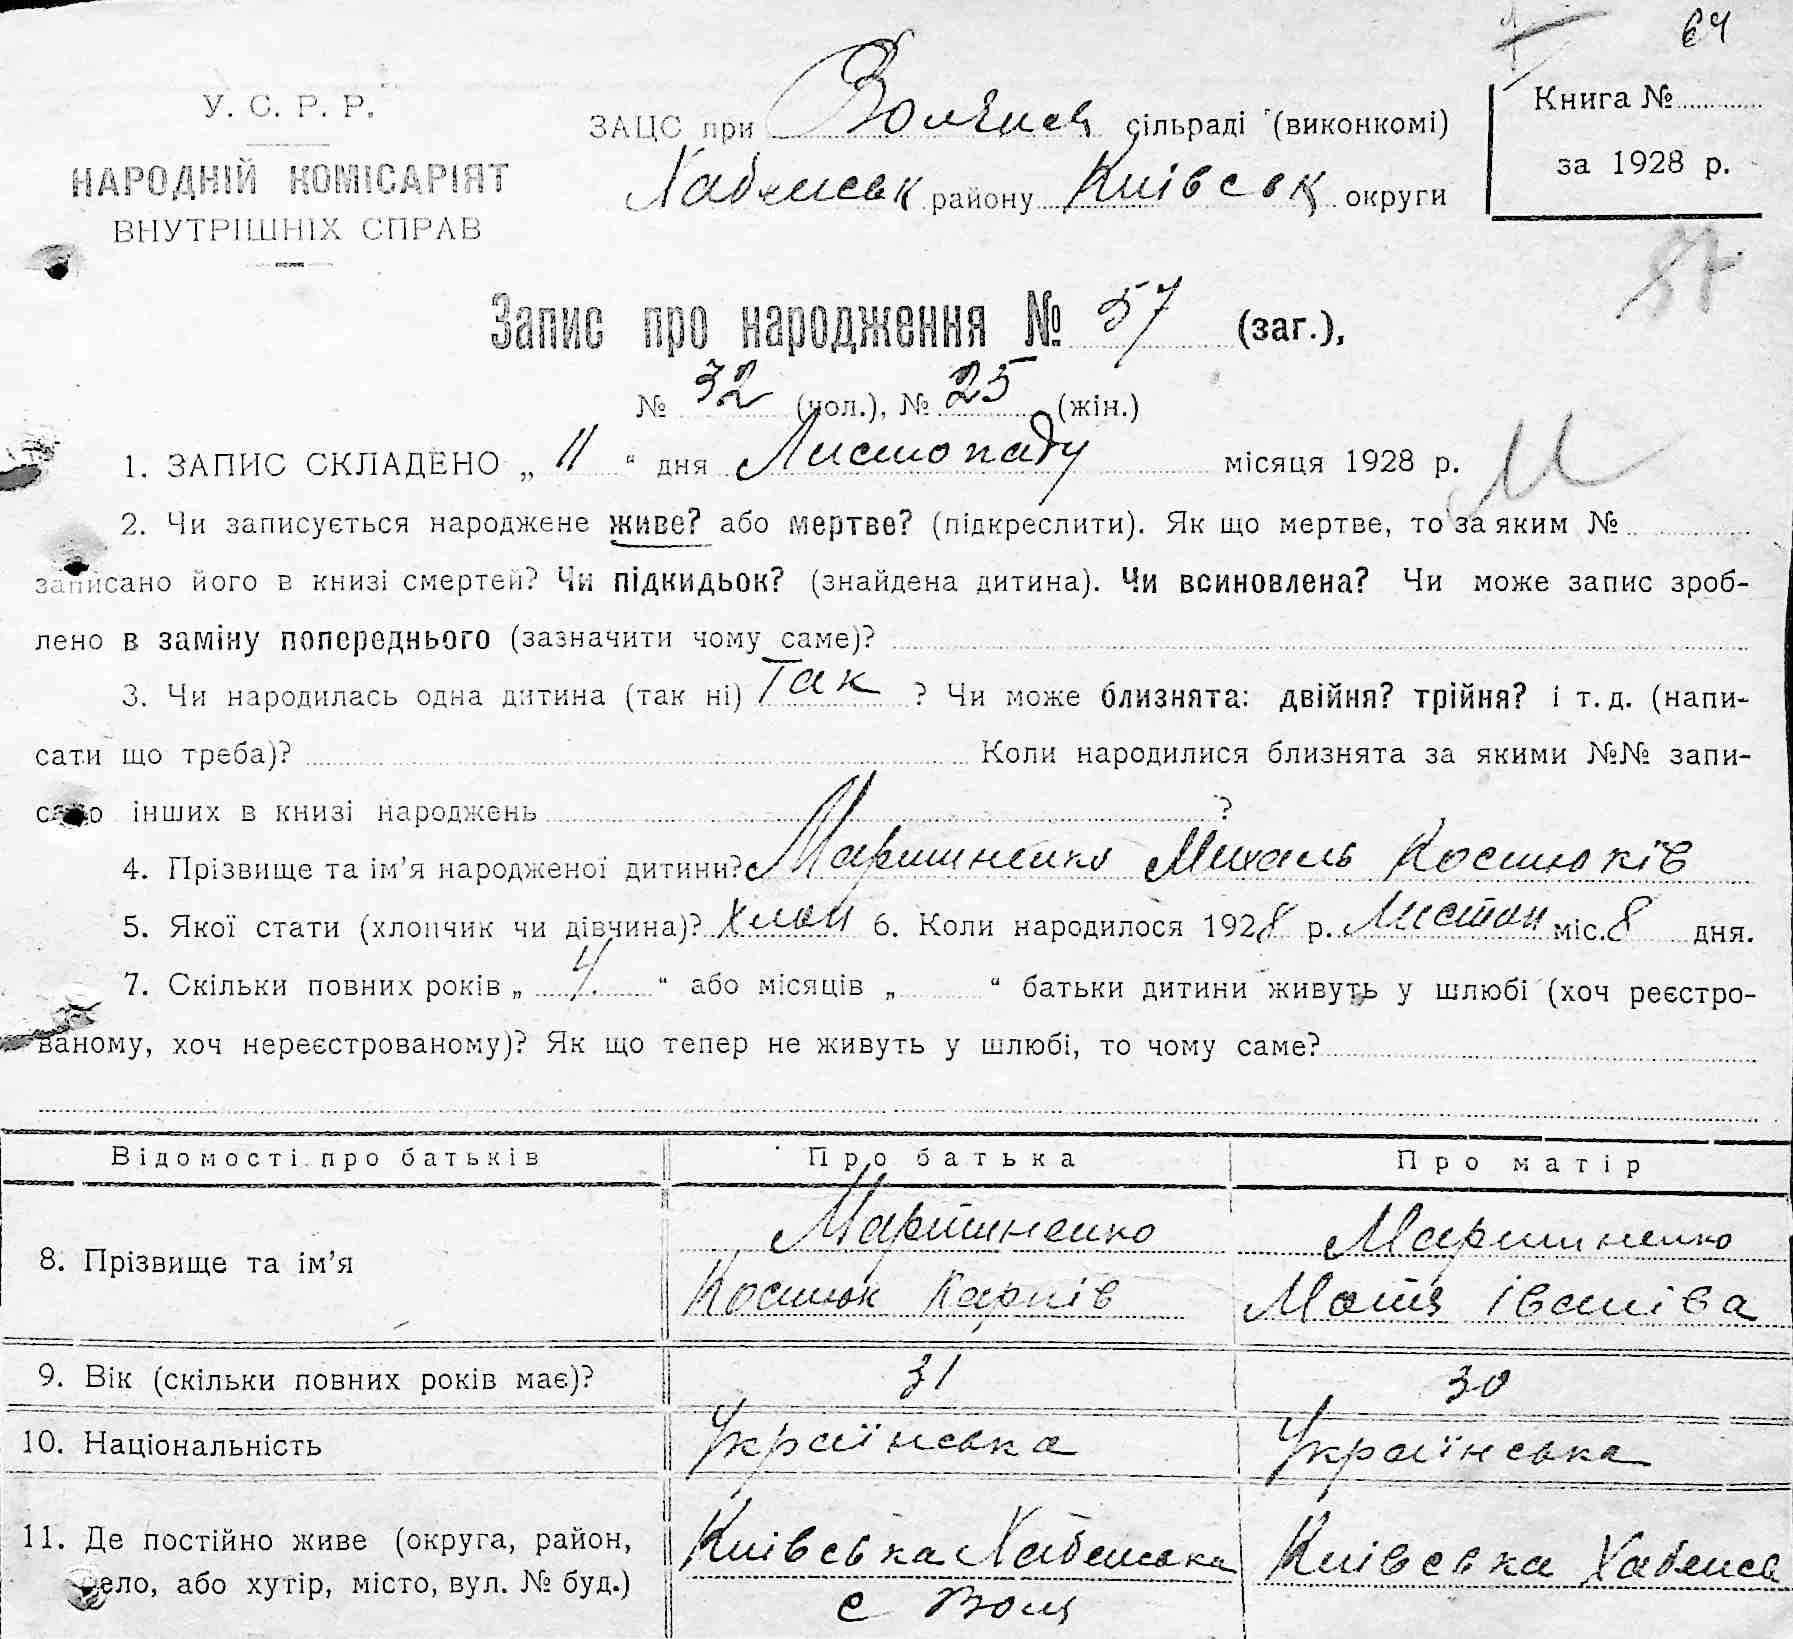 64
У. С. Р. Р.
НАРОДНІЙ КОМІСАРІЯТ
ВНУТРІШНІХ СПРАВ
ЗАЦС при сільраді (виконкомі)
району Київськ округи
Книга №
за 1928 р.
57
Запис про народження № 57 (заг.),
№ 32 (чол.), № 25 (жін.)
1. ЗАПИС СКЛАДЕНО „ 11 “ дня Листопаду місяця 1928 р.
2. Чи записується народжене живе? або мертве? (підкреслити). Як що мертве, то за яким №
записано його в книзі смертей? Чи підкидьок? (знайдена дитина). Чи всиновлена? Чи може запис зроб-
лено в заміну попереднього (зазначити чому саме)?
3. Чи народилась одна дитина (так ні) Так ? Чи може близнята: двійня? трійня? і т. д. (напи-
сати що треба)? Коли народилися близнята за якими №№ запи-
сано інших в книзі народжень ?
4. Прізвище та ім’я народженої дитини? Мартиненко Михаль Костюків
5. Якої стати (хлопчик чи дівчина)? Хлоп 6. Коли народилося 1928 р. Листоп міс. 8 дня.
7. Скільки повних років „ 4 “ або місяців „ “ батьки дитини живуть у шлюбі (хоч реєстро-
ваному, хоч нереєстрованому)? Як що тепер не живуть у шлюбі, то чому саме?
Відомості про батьків Про батька Про матір
8. Прізвище та ім’я
Мартиненко
Костюк Карпів
Мартиненко
Мотя Іваніва
9. Вік (скільки повних років має)? 31 30
10. Національність Українська Українська
11. Де постійно живе (округа, район,
село, або хутір, місто, вул. № буд.)
Київська
с
Київська